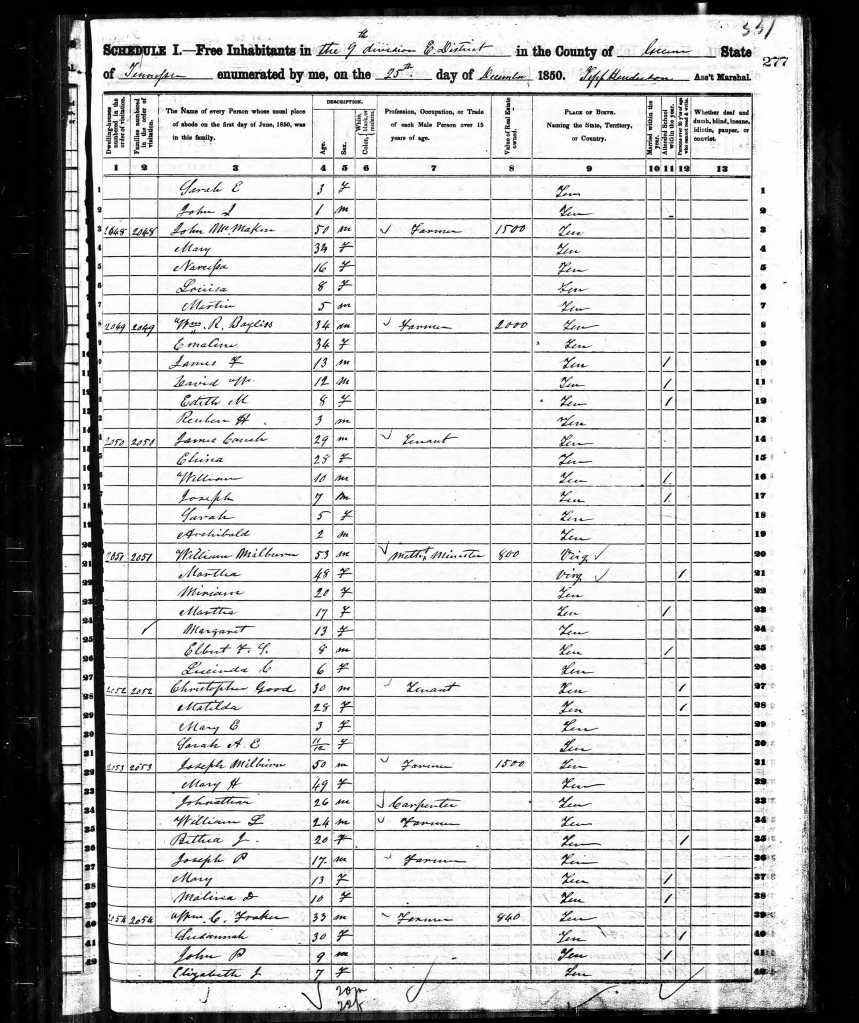 551
277
SCHEDULE I.—Free Inhabitants in the 9th division E. District in the County of Greene State
of Tennessee enumerated by me, on the 25th day of December 1850. Jeff Henderson Ass't Marshal.
Dwelling-houses numbered in the order of visitation.
Families numbered in the order of visitation.
The Name of every Person whose usual place of abode on the first day of June, 1850, was in this family.
DESCRIPTION.
Age.
Sex.
Color, White, black, or mulatto.
Profession, Occupation, or Trade of each Male Person over 15 years of age.
Value of Real Estate owned.
PLACE OF BIRTH. Naming the State, Territory, or Country.
Married within the year.
Attended School within the year.
Persons over 20 y'rs of age who cannot read & write.
Whether deaf and dumb, blind, insane, idiotic, pauper, or convict.
1 2 3 4 5 6 7 8 9 10 11 12 13
1 Sarah E 3 F Ten 1
2 John I 1 m Ten 2
3 2048 2048 John McMakin 50 m Farmer 1500 Ten 3
4 Mary 34 F Ten 4
5 Narcissa 16 F Ten 5
6 Louisa 8 F Ten 6
7 Martin 5 m Ten 7
8 2049 2049 Wm. R. Bayliss 34 m Farmer 2000 Ten 8
9 Emaline 34 F Ten 9
10 James F 13 m Ten 1 10
11 David W. 12 m Ten 1 11
12 Edith M 8 F Ten 1 12
13 Reuben H 3 m Ten 13
14 2050 2050 James Couch 29 m Tenant Ten 14
15 Elvina 28 F Ten 15
16 William 10 m Ten 1 16
17 Joseph 7 m Ten 1 17
18 Sarah 5 F Ten 18
19 Archibald 2 m Ten 19
20 2051 2051 William Milburn 53 m Metht Minister 800 Virg 20
21 Martha 48 F Virg 1 21
22 Miriam 20 F Ten 22
23 Martha 17 F Ten 1 23
24 Margaret 13 F Ten 24
25 Elbert F. S. 8 m Ten 1 25
26 Lucinda C 6 F Ten 26
27 2052 2052 Christopher Good 30 m Tenant Ten 1 27
28 Matilda 28 F Ten 1 28
29 Mary E 3 F Ten 29
30 Sarah A E 11/12 F Ten 30
31 2053 2053 Joseph Milburn 50 m Farmer 1500 Ten 31
32 Mary H 49 F Ten 32
33 Johnathan 26 m Carpenter Ten 33
34 William L 24 m Farmer Ten 34
35 Bethia J. 20 F Ten 1 35
36 Joseph P 17 m Farmer Ten 36
37 Mary 13 F Ten 1 37
38 Malina D 10 F Ten 1 38
39 2054 2054 Wm. C. Fraker 33 m Farmer 840 Ten 39
40 Susannah 30 F Ten 1 40
41 John P 9 m Ten 1 41
42 Elizabeth J 7 F Ten 42
20m
22f